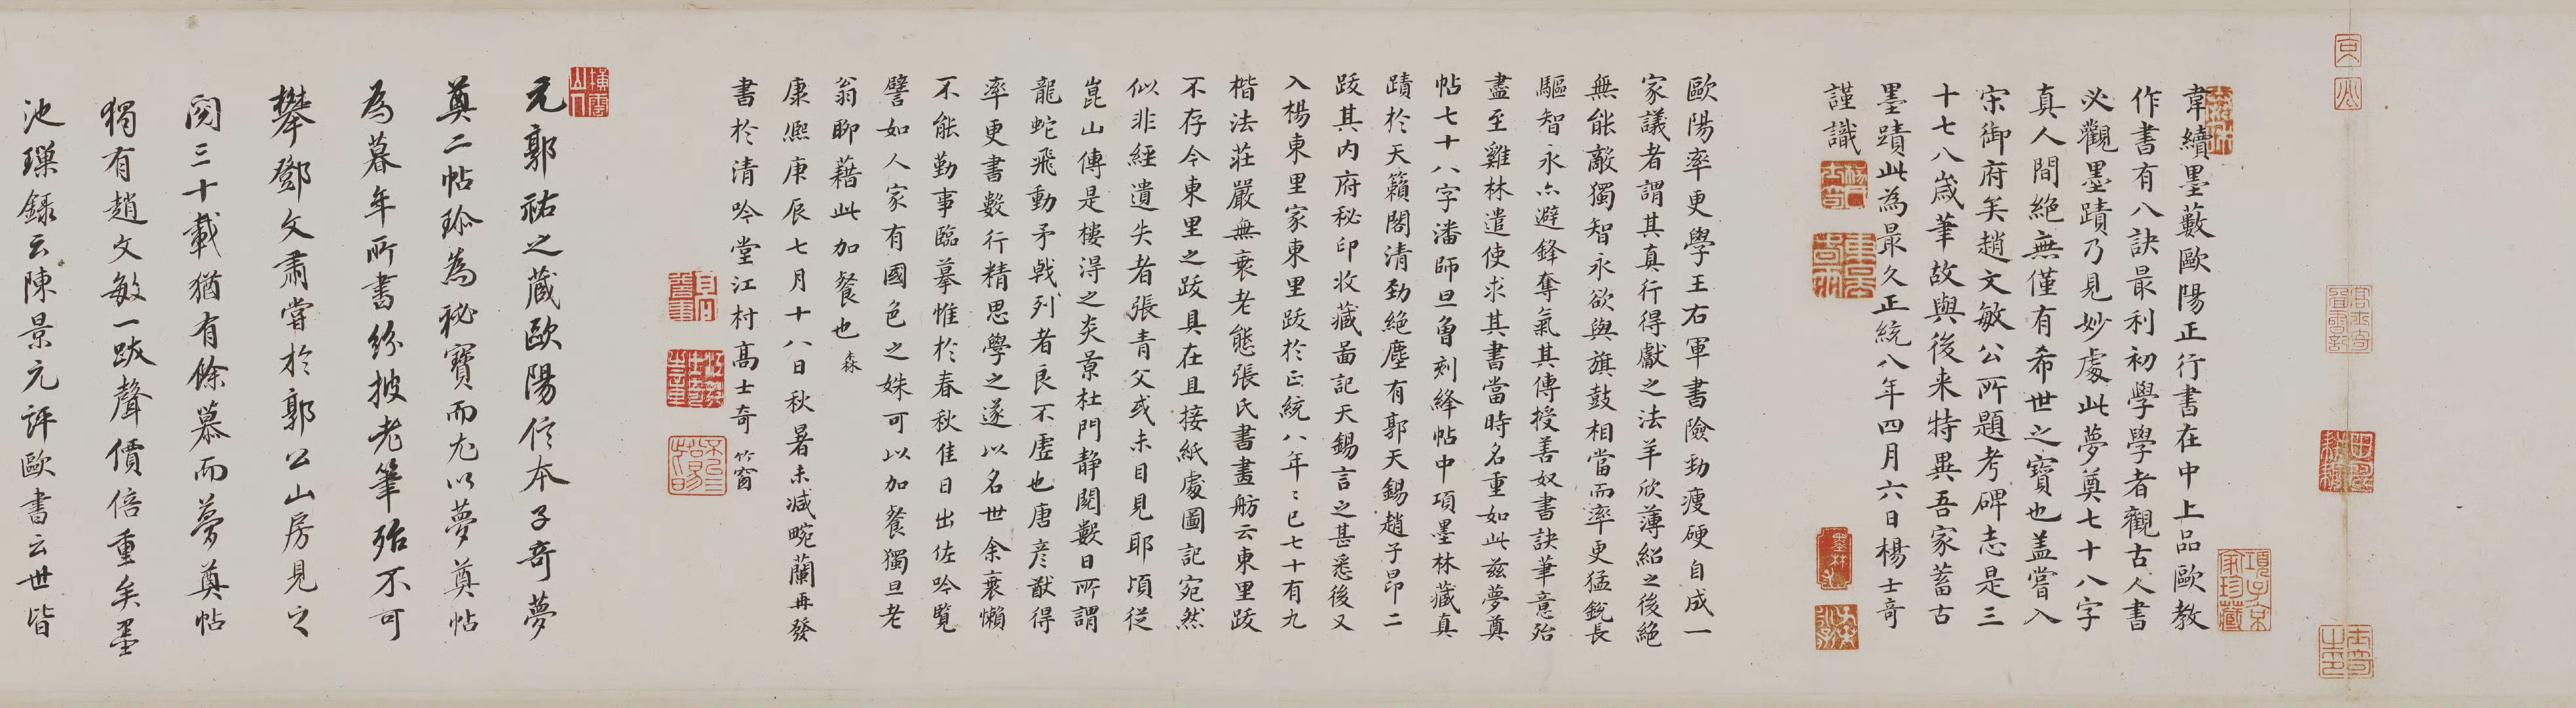 韋續墨藪歐陽正行書在中上品歐教
作書有八訣最利初學學者觀古人書
必觀墨蹟乃見妙處此夢奠七十八字
真人間絕無僅有希世之寶也盖嘗入
宋御府矣趙文敏公所題考碑志是三
十七八歲筆故與後来特異吾家蓄古
墨蹟此為最久正統八年四月六日楊士奇
謹識
歐陽率更學王右軍書險勁瘦硬自成一
家議者謂其真行得獻之法羊欣薄紹之後絕
無能敵獨智永欲與旗鼓相當而率更猛銳長
驅智永亦避鋒奪氣其傳授善奴書訣筆意殆
盡至雞林遣使求其書當時名重如此茲夢奠
帖七十八字潘師旦曾刻絳帖中項墨林藏真
蹟於天籟閣清勁絕塵有郭天錫趙子昂二
跋其內府秘印收藏啚記天錫言之甚悉後又
入楊東里家東里跋於正統八年〻已七十有九
楷法莊嚴無衰老態張氏書畫舫云東里跋
不存今東里之跋具在且接紙處圖記宛然
似非經遺失者張青父或未目見耶頃從
崑山傳是樓淂之炎景杜門静閱數日所謂
龍蛇飛動矛戟列者良不虛也唐彦猷得
率更書數行精思學之遂以名世余衰懶
不能勤事臨摹惟於春秋佳日出佐吟覧
譬如人家有國色之姝可以加餐獨旦老
翁聊藉此加餐也 森
康熙庚辰七月十八日秋暑未减畹蘭再發
書於清吟堂江村高士奇 竹窗
元郭祐之蔵歐陽信本子奇夢
奠二帖珎為祕寶而尤以夢奠帖
為暮年所書紛披老筆殆不可
攀鄧文肅嘗於郭公山房見之
閱三十載猶有餘慕而夢奠帖
獨有趙文敏一跋聲價倍重矣墨
池璅錄云陳景元評歐書云世皆